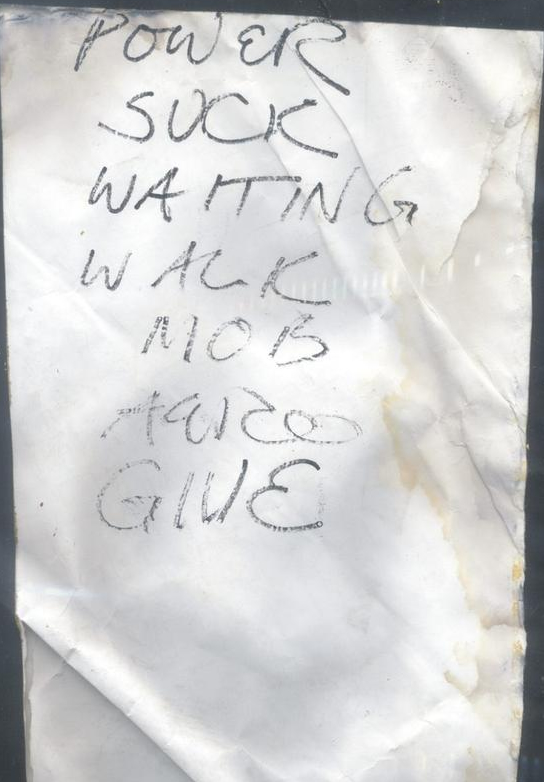 POWER
SUCK
WAITING
WALK
MOB
GIVE